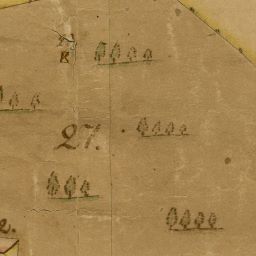 R
27.
e.